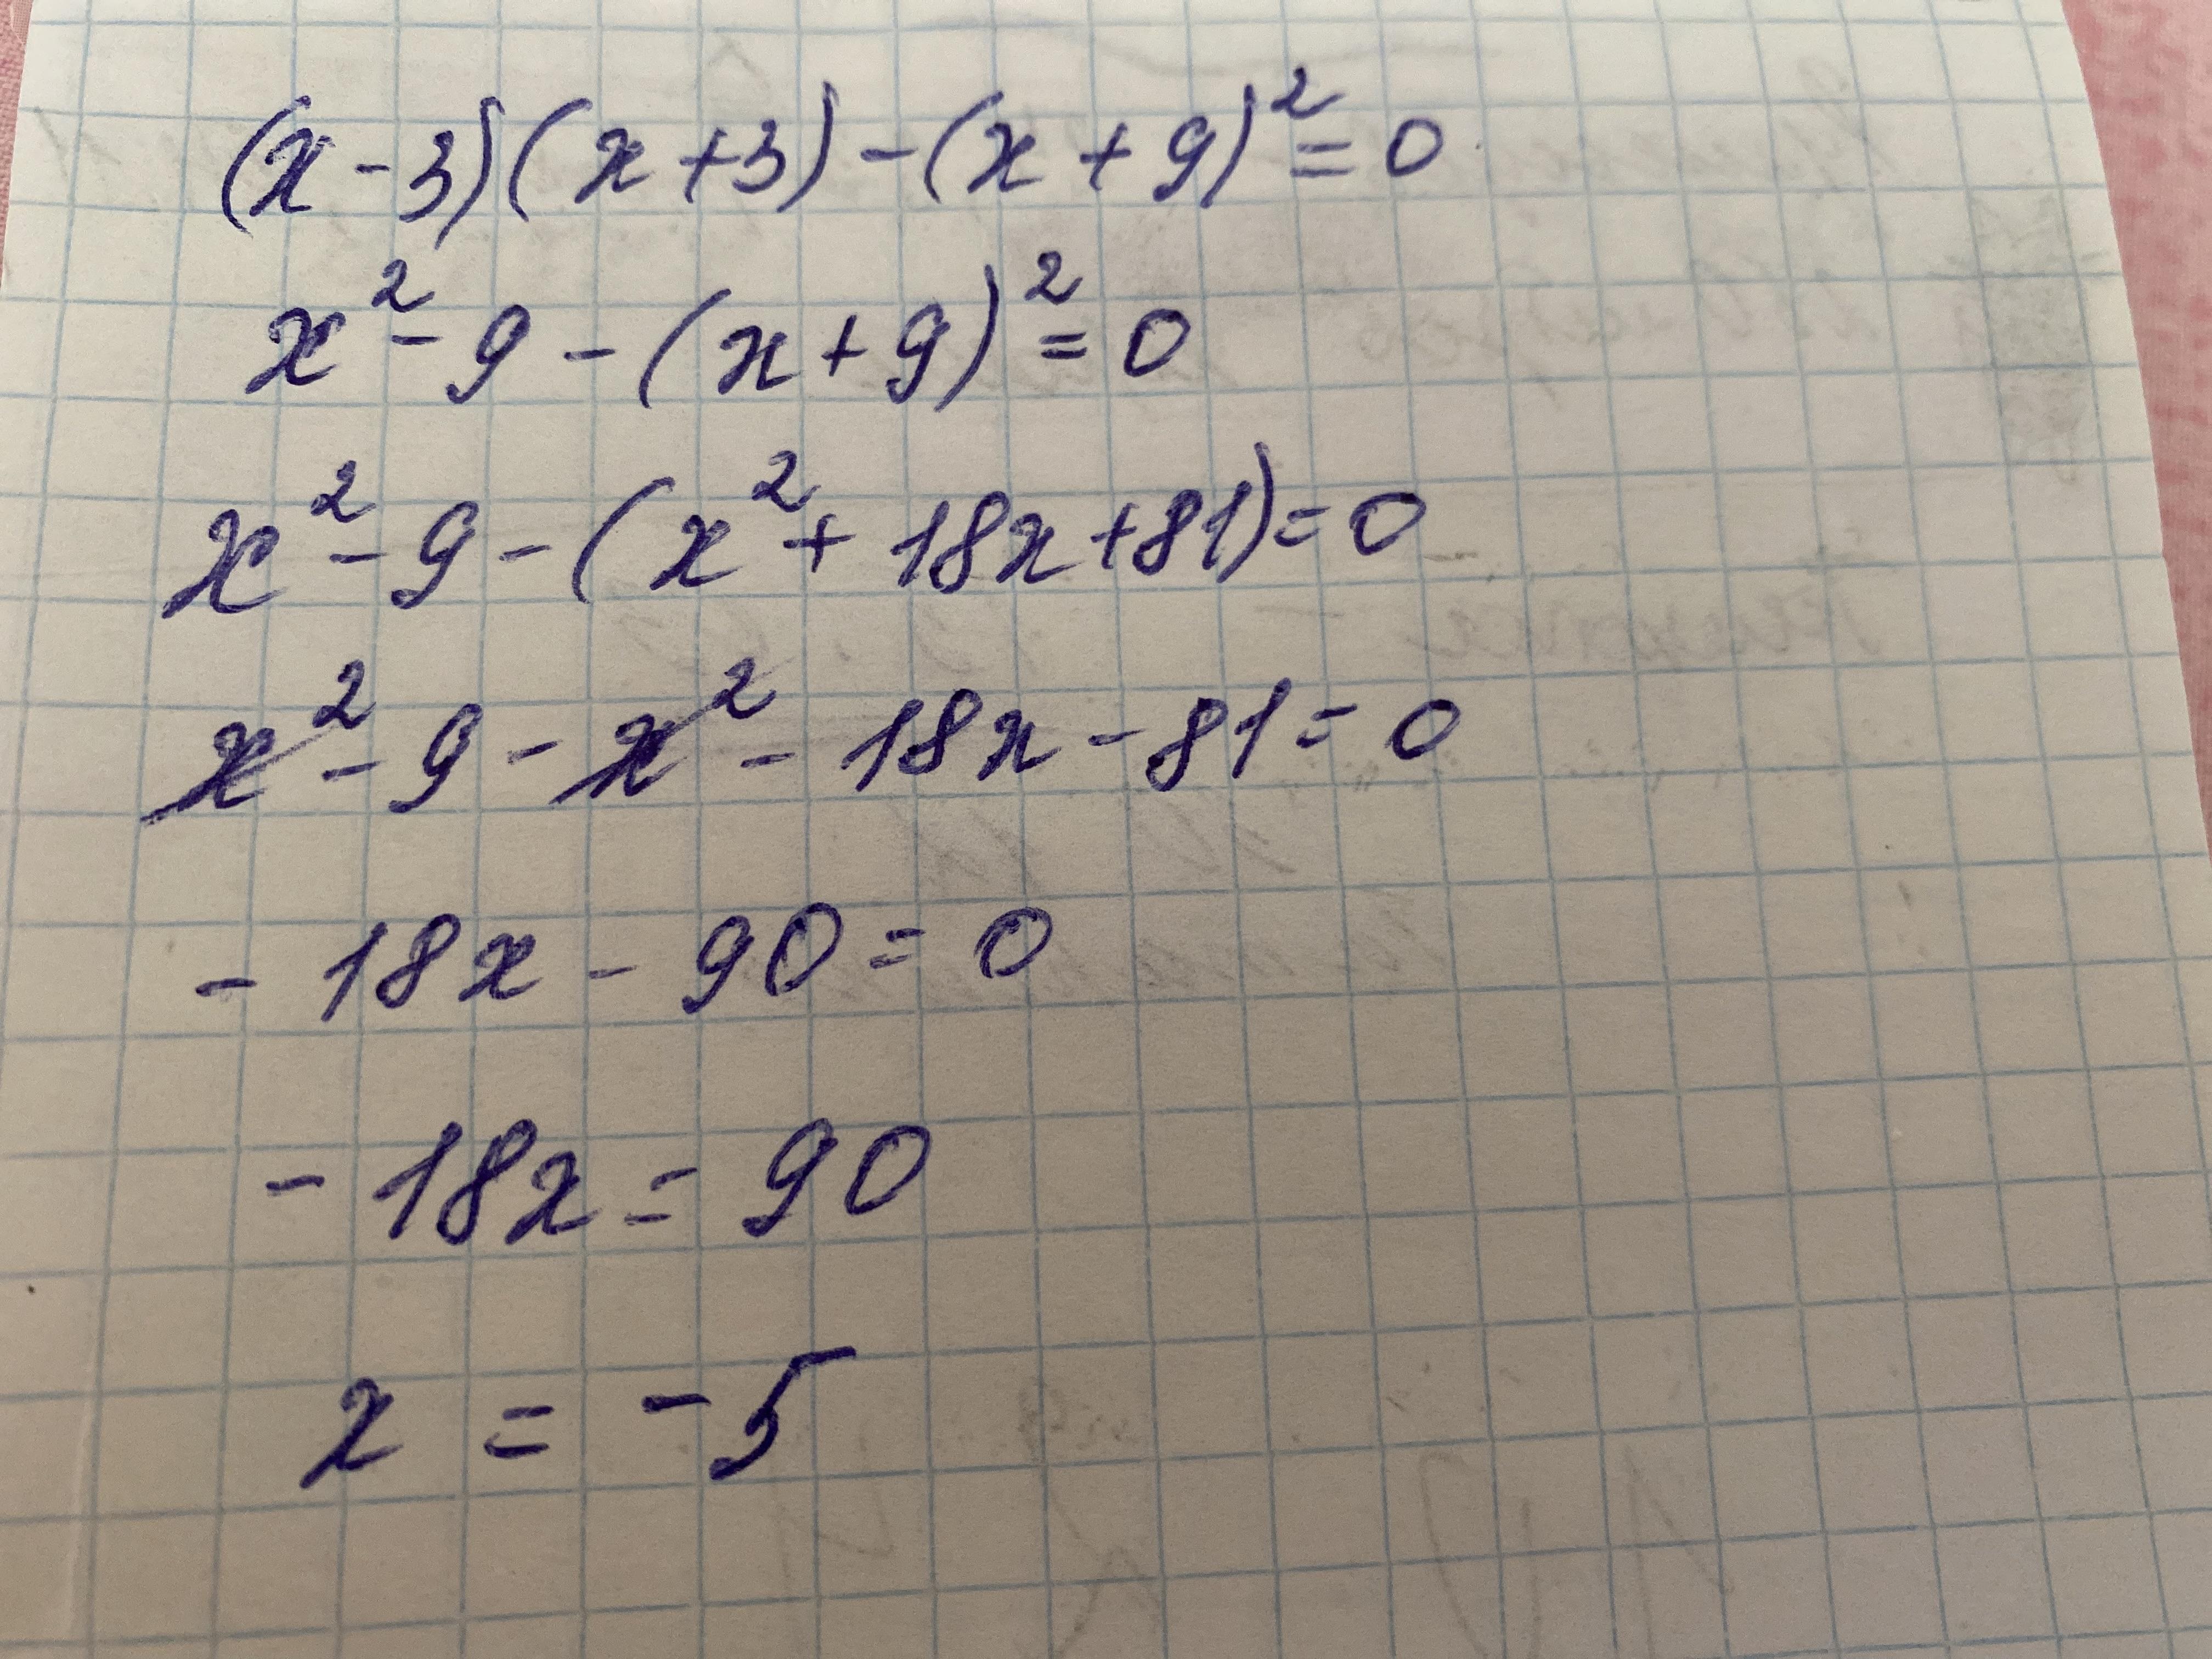 (x-3)(x+3)-(x+9)²=0
x²-9-(x+9)²=0
x²-9-(x²+18x+81)=0
x²-9-x²-18x-81=0
-18x-90=0
-18x=90
x=-5